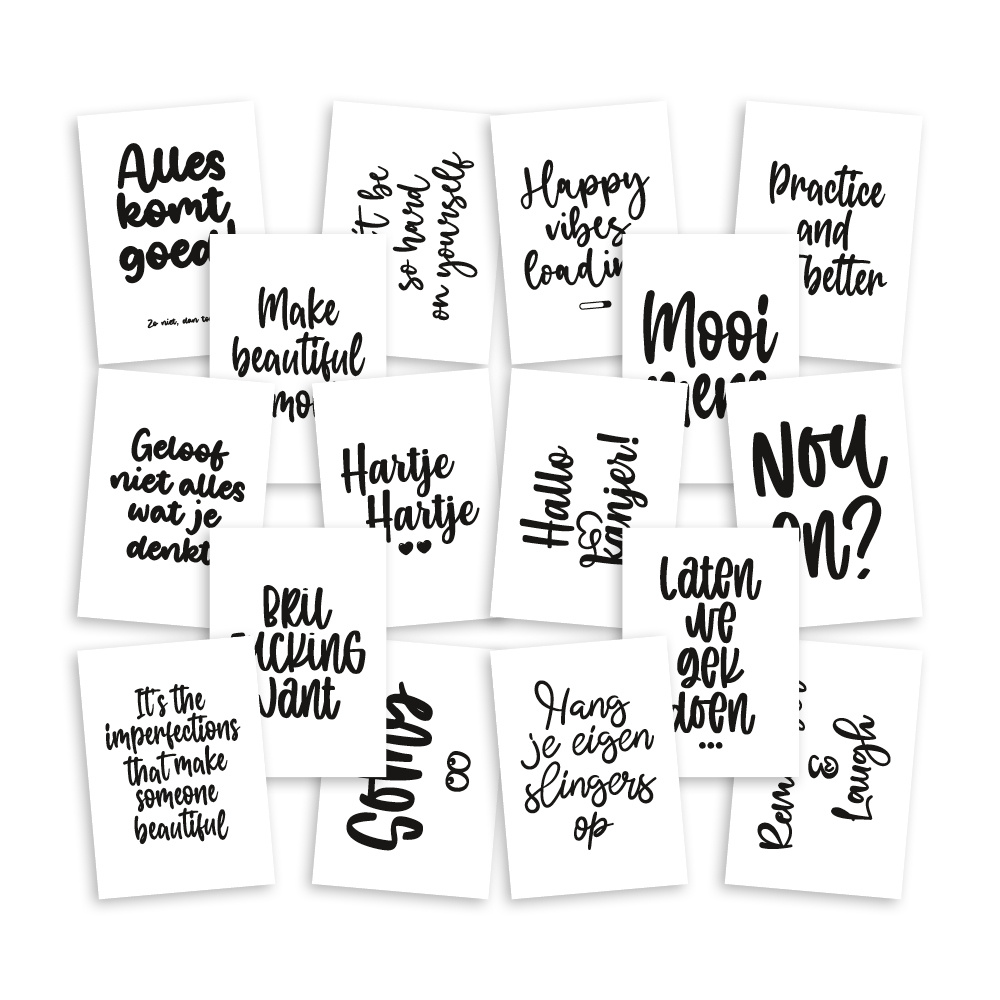 Alles
komt
goed!
Zo niet, dan
be
so hard
on yourself
Happy
vibes
Practice
and
better
Make
beautiful
Mooi
Geloof
niet alles
wat je
denkt
Hartje
Hartje
Hallo
kanjer!
Nou
en?
BRIL
want
Laten
we
gek
doen
...
It's the
imperfections
that make
someone
beautiful
Soms
Hang
je eigen
slingers
op
Laugh